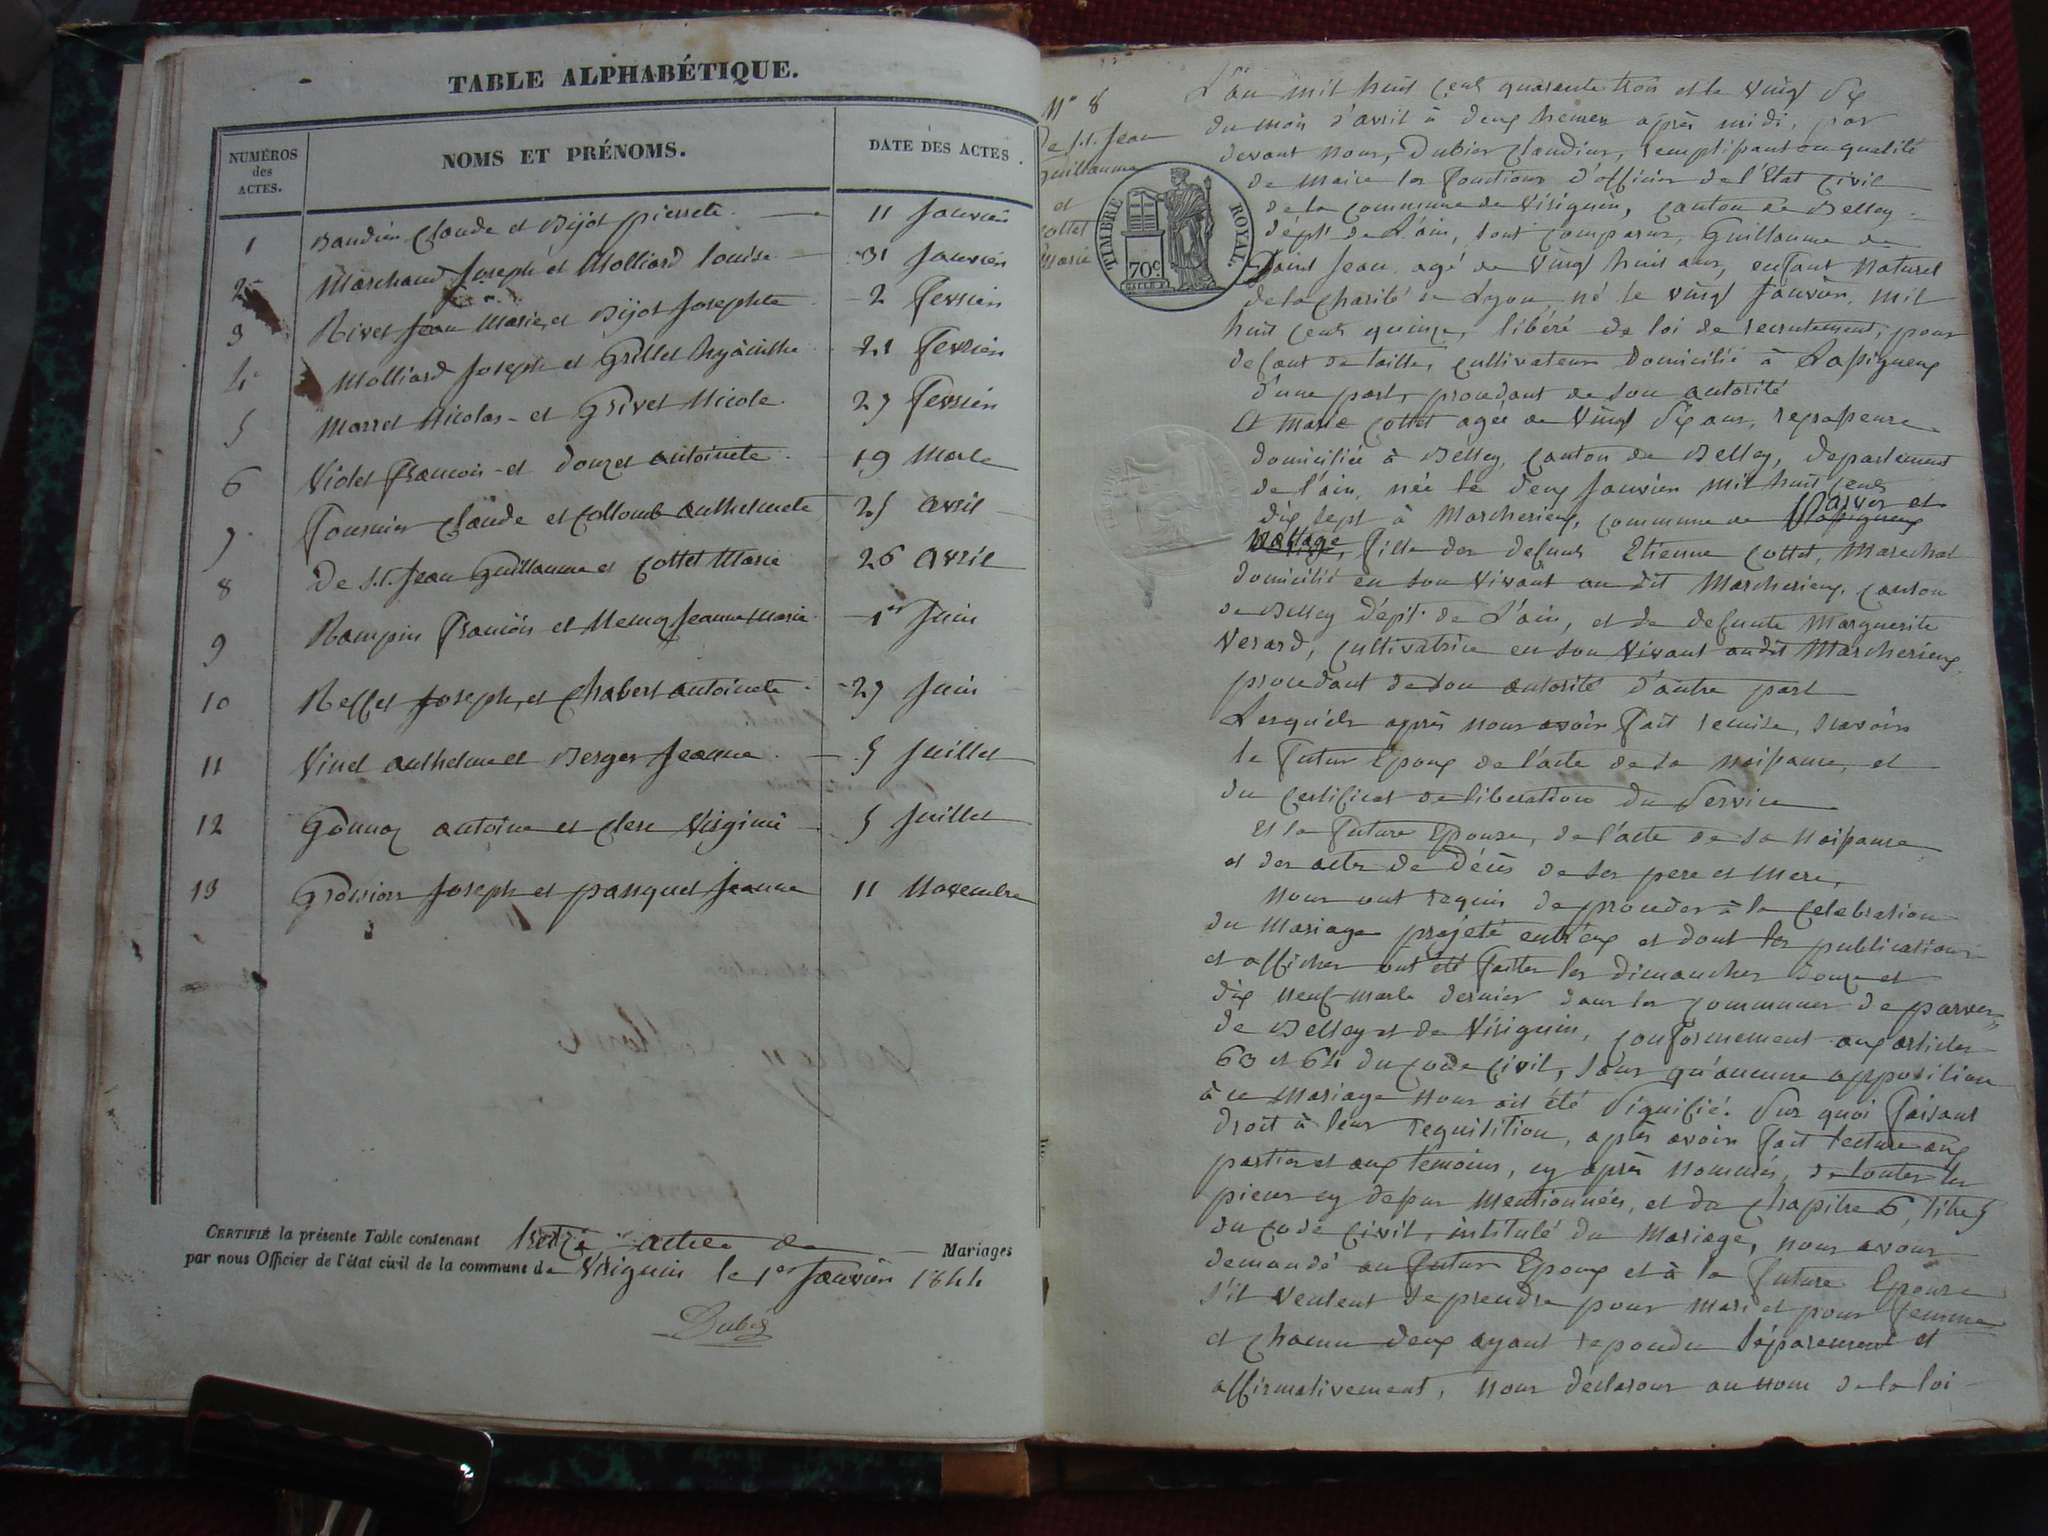 TABLE ALPHABÉTIQUE.
NUMÉROS des ACTES.
NOMS ET PRÉNOMS.
DATE DES ACTES.
1 Baudin Claude et Bijot pierrete 11 Janvier
2 Marchand Joseph et Molliard Louise 31 Janvier
3 Rivet Jean Marie et Bijot Josephte 2 Fevrier
4 Molliard Joseph et Grillet hyacinthe 21 Fevrier
5 Marret Nicolas et Grivet Nicole 27 Fevrier
6 Violet François et Douzet antoinete 19 Mars
7 Fournier Claude et Collomb anthelmete 25 avril
8 De St. Jean Guillaume et Cottet Marie 26 avril
9 Rampin François et Jeanne Marie 1er Juin
10 Reffet Joseph et Chabert antoinete 27 Juin
11 Vinet anthelme et Berger Jeanne 5 Juillet
12 Gonnoz antoine et Clerc Virginie 5 Juillet
13 Joseph et panquet Jeanne 11 Novembre
CERTIFIÉ la présente Table contenant treize actes de Mariages
par nous Officier de l'état civil de la commune de Virignin le 1er Janvier 1844
Dubier
N° 8
De St. Jean
Guillaume
et
Cottet
Marie
TIMBRE ROYAL.
70c.
L'an mil huit cent quarante trois et le vingt six
du mois d'avril à deux heures après midi, par
devant nous, Dubier Claudius, remplissant en qualité
de Maire les fonctions d'officier de l'Etat Civil
de la commune de Virignin, canton de Belley
dépt. de L'ain, sont comparus, Guillaume de
Saint Jean agé de vingt huit ans, enfant Naturel
de la charité de Lyon, né le vingt Janvier mil
huit cent quinze, libéré de loi de recrutement, pour
defaut de taille, cultivateur domicilié à Lassignieux
d'une part, procedant de son autorité
Et Marie Cottet agée de vingt six ans, repasseuse
domiciliée à Belley, canton de Belley, departement
de l'ain, née le deux Janvier mil huit cent
dix sept à Marcherieux, commune de Parves et
fille des defunts Etienne Cottet, Marechal
domicilié en son vivant au dit Marcherieux, canton
de Belley dépt. de L'ain, et de defunte Marguerite
Verard, cultivatrice en son vivant au dit Marcherieux
procedant de son autorité d'autre part
Lesquels après nous avoir fait remise, savoir
le futur Epoux de l'acte de sa naissance, et
du certificat de liberation du Service
Et la future Epouse, de l'acte de sa naissance
et des actes de décès de ses pere et mere,
nous ont requis de proceder à la celebration
du Mariage projeté entr'eux et dont les publications
et affiches ont été faites les dimanches douze et
dix neuf mars dernier dans les communes de parves,
de Belley et de Virignin, conformement aux articles
63 et 64 du code civil, sans qu'aucune opposition
à ce mariage nous ait été signifié. Sur quoi faisant
droit à leur requisition, après avoir fait lecture aux
parties et aux temoins, cy après nommés, de toutes les
pieces cy dessus mentionnées, et du chapitre 6, titre 5
du code civil, intitulé du Mariage, nous avons
demandé au futur Epoux et à la future Epouse
s'il veulent se prendre pour mari et pour femme
et chacun deux ayant repondu séparement et
affirmativement, nous déclarons au nom de la loi